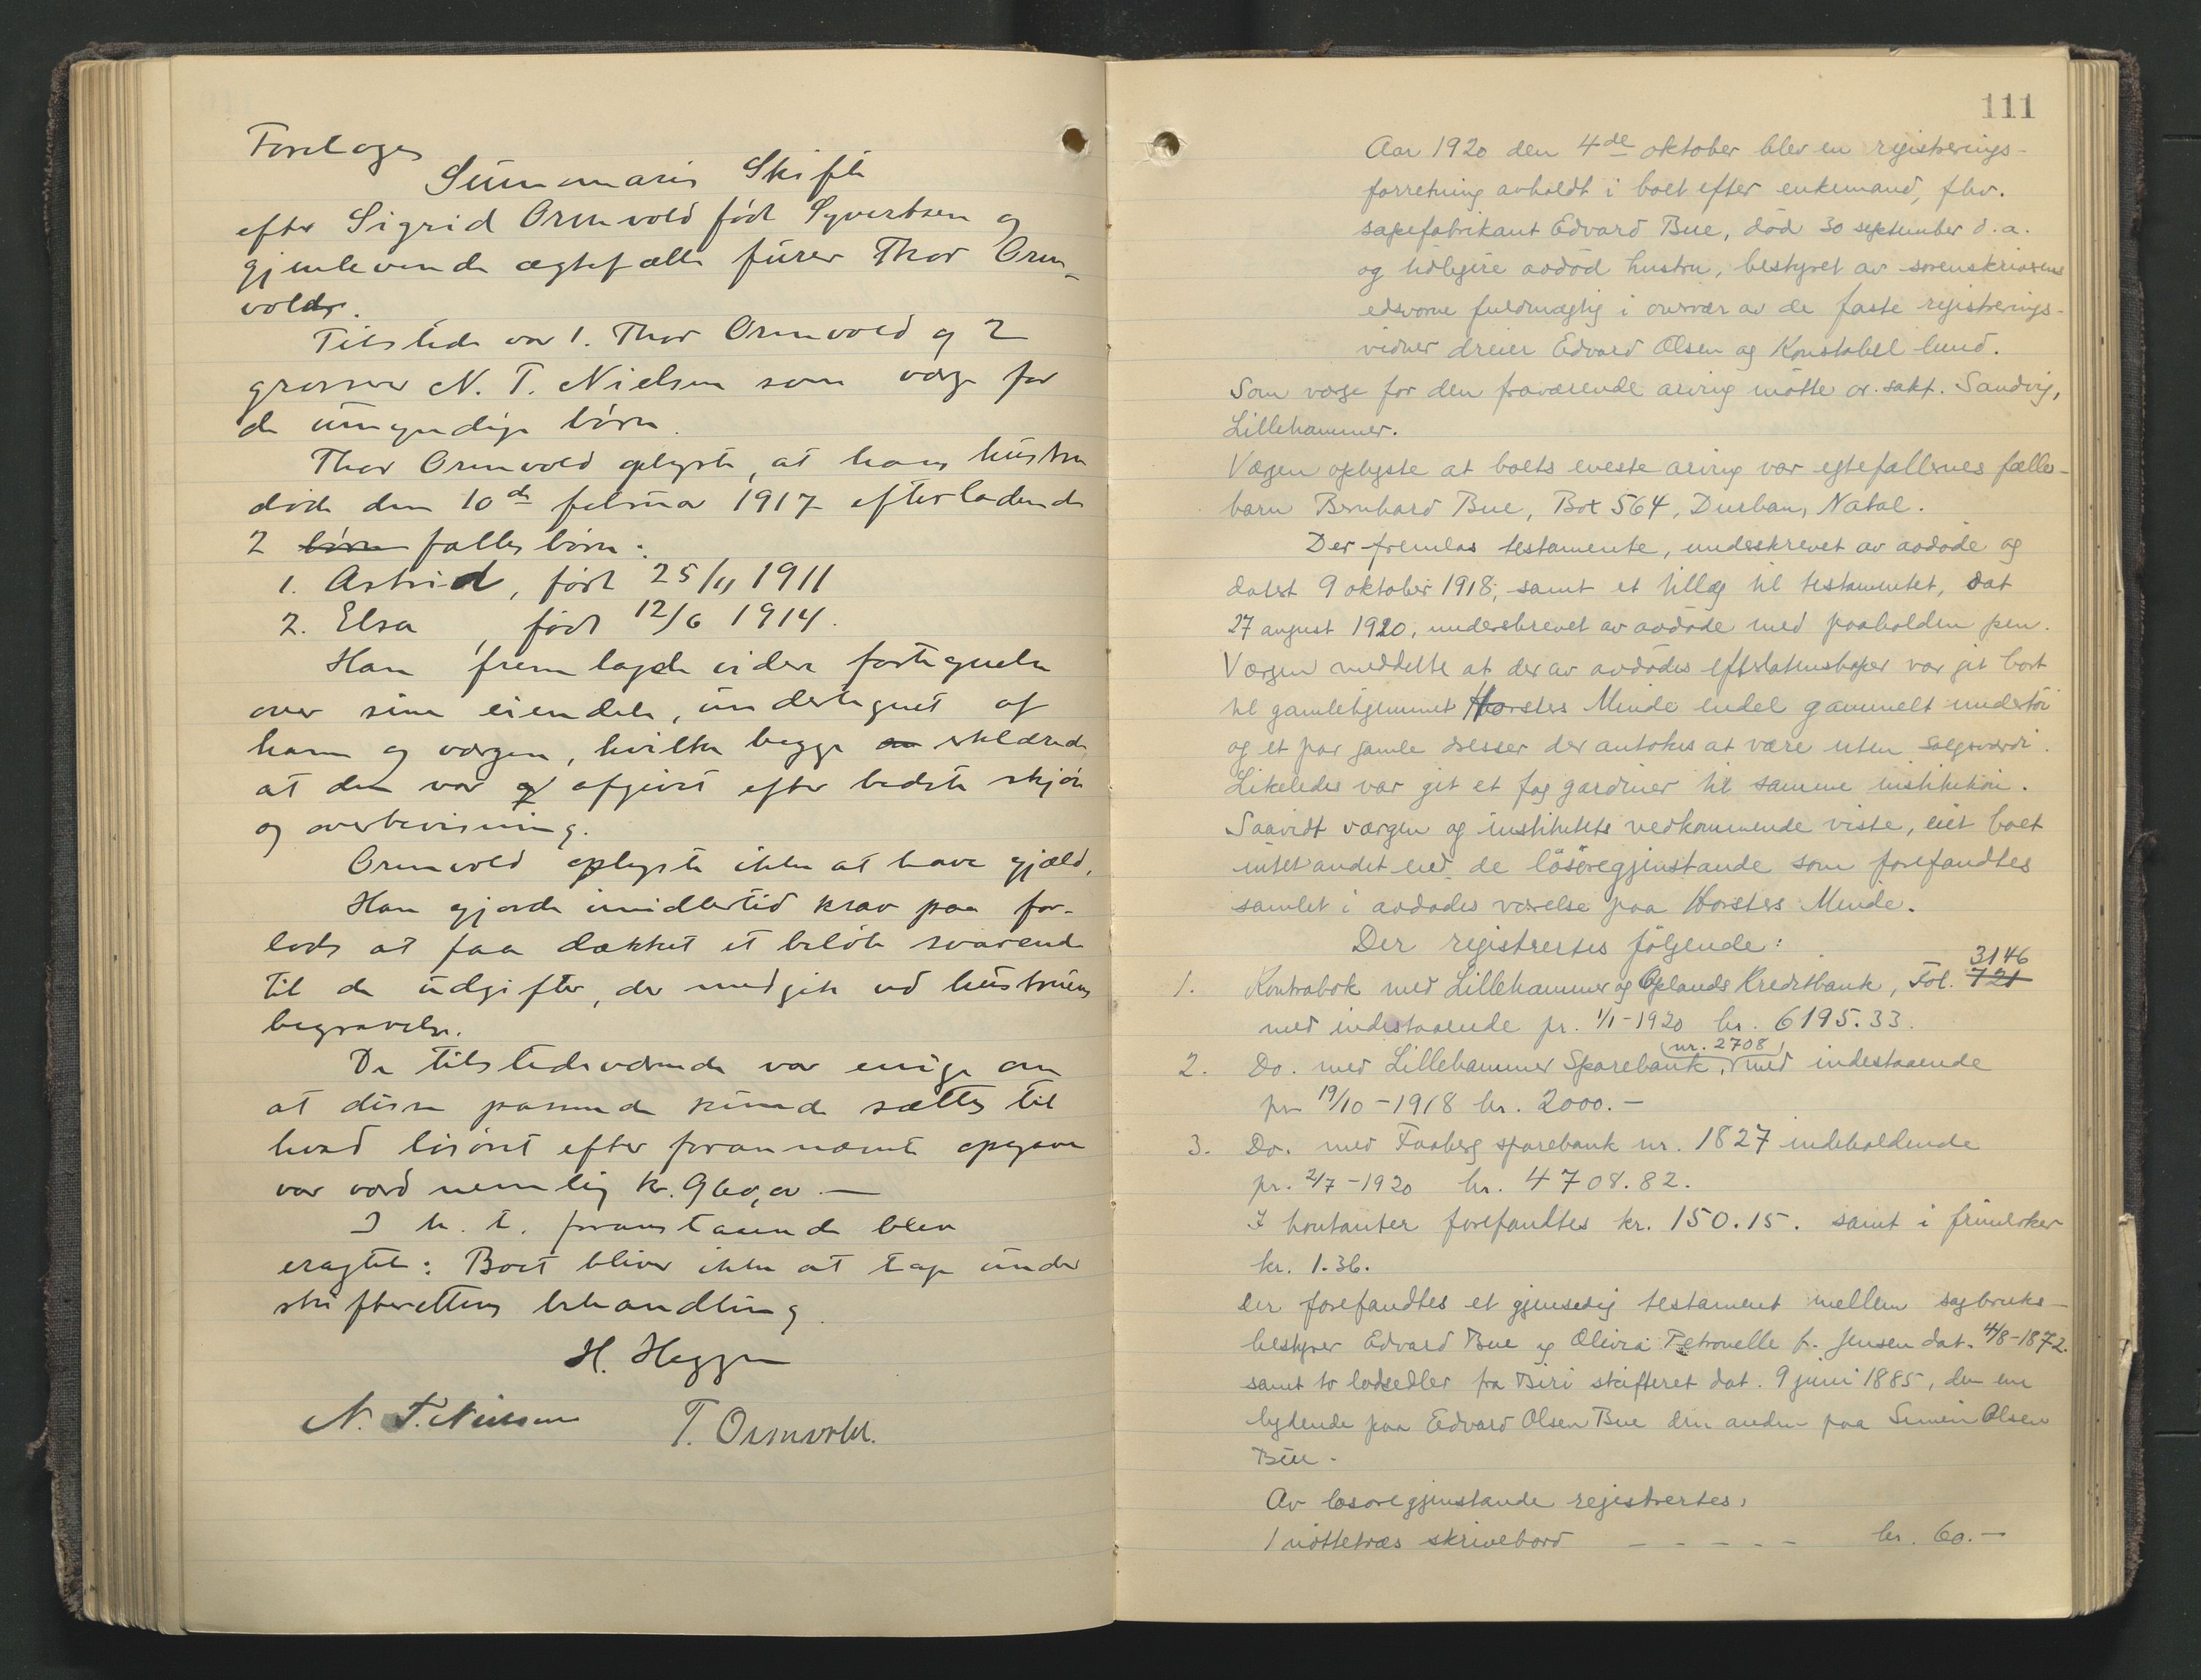 Foretoges
Summarisk Skifte
efter Sigrid Ormvold født Syvertsen og
gjenlevende ægtefælle furer Thor Orm-
vold.
Tilstede var 1. Thor Ormvold og 2
grosserer N. T. Nielsen som værge for
de umyndige børn.
Thor Ormvold oplyste, at hans hustru
døde den 10de februar 1917 efterladende
2 børn fælles børn:
1. Astrid, født 25/11 1911
2. Elsa, født 12/6 1914.
Han fremlagde videre fortegnelse
over sine eiendele, undertegnet af
ham og værgen, hvilke begge erklærede,
at den var afgivet efter bedste skjøn
og overbevisning.
Ormvold oplyste ikke at have gjæld.
Han gjorde imidlertid krav paa for-
lods at faa dækket et beløb svarende
til de udgifter, der medgik ved hustruens
begravelse.
De tilstedeværende var enige om
at disse passende kunde sættes til
hvad løsøret efter forannævnte opgave
var værd nemlig kr. 960,00 —
I h. t. foranstaaende blev
eragtet: Boet bliver ikke at tage under
skifterettens behandling.
H. Heggen
N. T. Nielsen T. Ormvold.
111
Aar 1920 den 4de oktober blev en registrerings-
forretning avholdt i boet efter enkemand, fhv.
sæpefabrikant Edvard Bue, død 30 september d.a.
og tidligere avdød hustru, bestyret av sorenskriverens
edsvorne fuldmægtig i overvær av de faste registrerings-
vidner dreier Edvard Olsen og Konstabel Lund.
Som værge for den fraværende arving møtte or. sakf. Sandvig,
Lillehammer.
Værgen oplyste at boets eneste arving var egtefællernes fælles-
barn Bernhard Bue, Box 564, Durban, Natal.
Der fremlas testamente, underskrevet av avdøde og
datert 9 oktober 1918, samt et tillæg til testamentet, dat
27 august 1920, underskrevet av avdøde med paaholden pen.
Værgen meddelte at der av avdødes efterlatenskaper var git bort
til gamlehjemmet Horsters Minde endel gammelt undertøi
og et par gamle dresser der antokes at være uten salgsværdi.
Likeledes var git et fag gardiner til samme institution.
Saavidt værgen og institutets vedkommende viste, eiet boet
intet andet end de løsøregjenstande som forefandtes
samlet i avdødes værelse paa Horsters Minde.
Der registrertes følgende:
3146
1. Kontrabok med Lillehammer og Oplands Kreditbank, Fol. 721
med indestaaende pr. 1/1-1920 kr. 6195.33.
(nr. 2708)
2. Do. med Lillehammer Sparebank, med indestaaende
pr 19/10-1918 kr. 2000.-
3. Do. med Faaberg sparebank nr. 1827 indeholdende
pr. 2/7-1920 kr. 4708.82.
I kontanter forefandtes kr. 150.15. samt i frimerker
kr. 1.36.
Der forefandtes et gjensidig testament mellem sagbruks-
bestyrer Edvard Bue og Olivia Petronelle f. Jensen dat. 4/8-1872.
samt to lodsedler fra Biri skifteret dat. 9 juni 1885, den ene
lydende paa Edvard Olsen Bue den anden paa Simen Olsen
Bue.
Av løsøregjenstande registrertes,
1 nøttetræs skrivebord - - - - - kr. 60.-